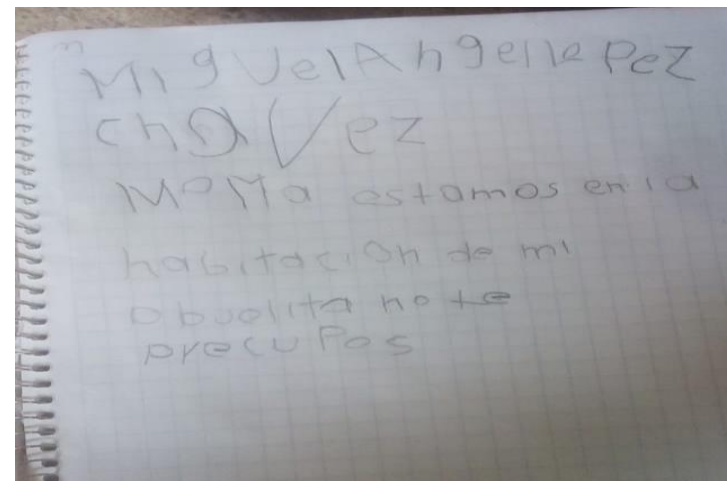 MigUelAngellepez
chaVez
MaMa estamos en la
habitación de mi
abuelita no te
precupas